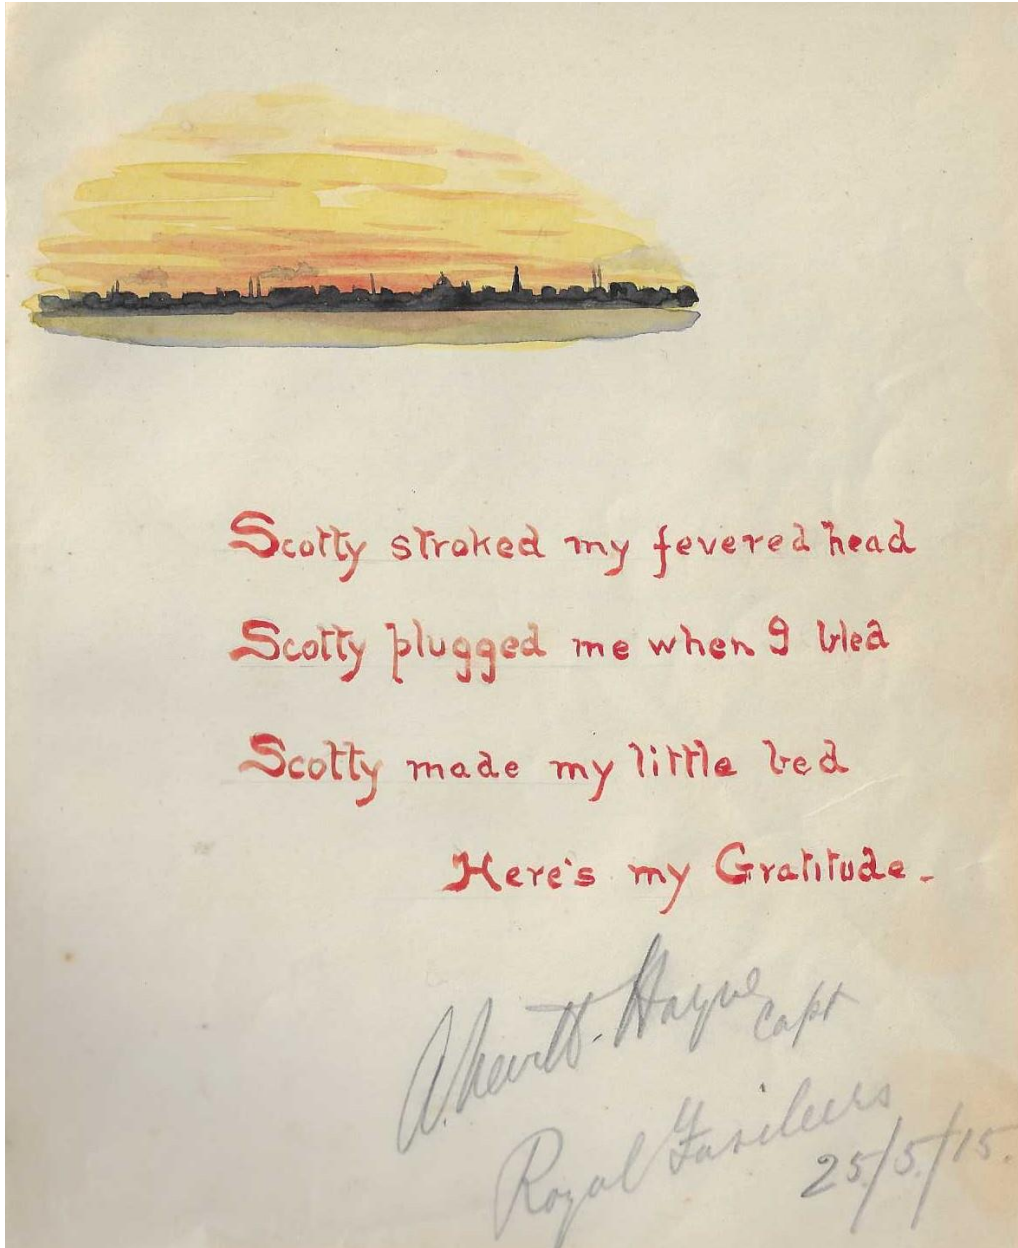 Scotty stroked my fevered head
Scotty plugged me when I bled
Scotty made my little bed
Here's my Gratitude.
Capt
Royal Fusileers
25/5/15.